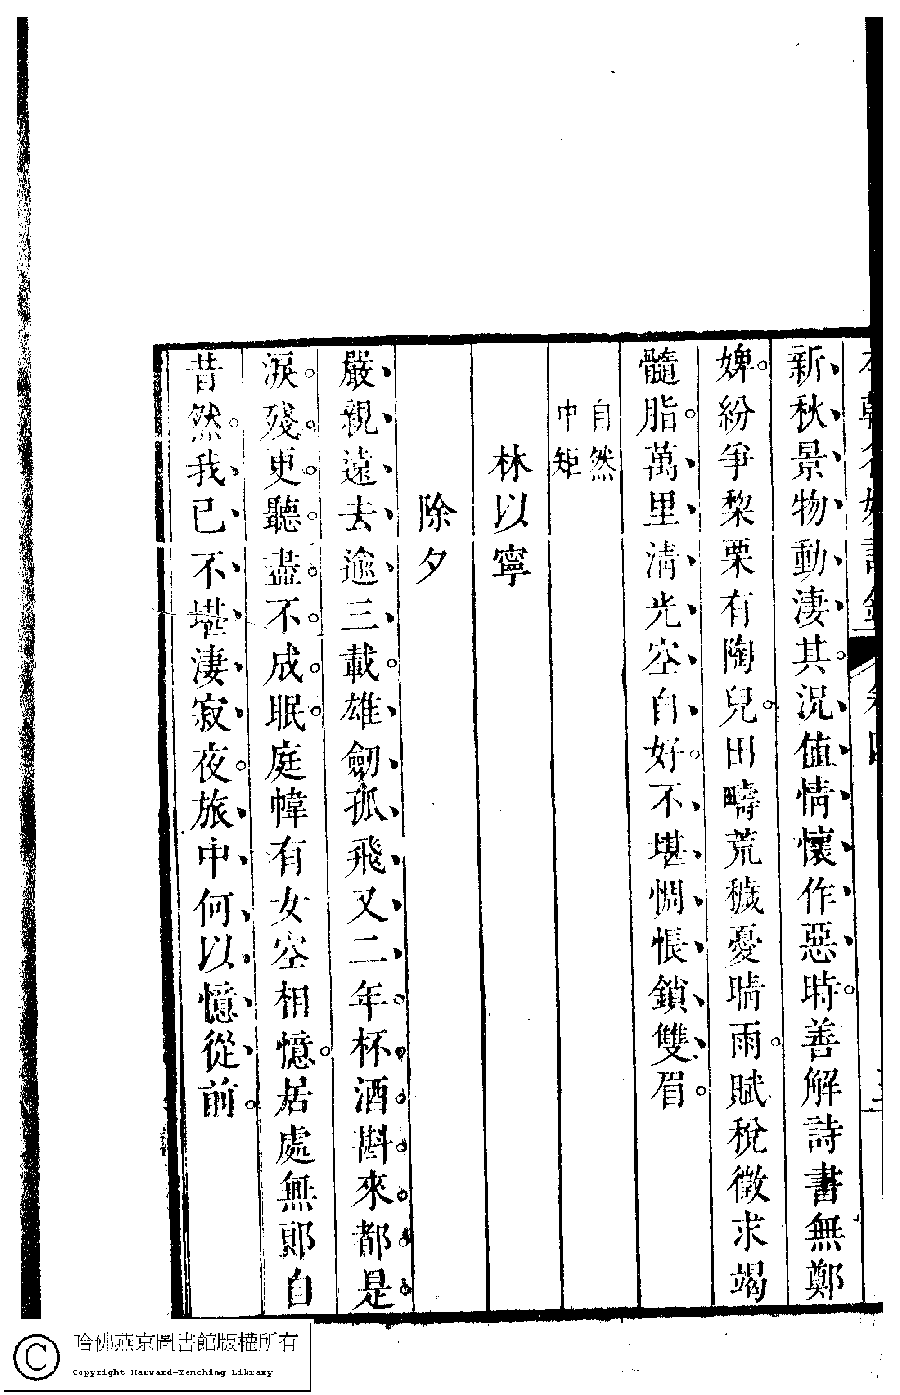 新秋景物動淒其況值情懷作惡時善解詩書無鄭
婢紛爭黎栗有陶兒田疇荒穢憂晴雨賦稅徵求竭
髓脂萬里清光空自好不堪惆悵鎖雙眉
自然
中矩
林以寧
除夕
嚴親遠去逾三載雄劒孤飛又二年杯酒斟來都是
淚殘更聽盡不成眠庭幃有女空相憶居處無郎自
昔然我已不堪淒寂夜旅中何以憶從前
哈佛燕京圖書館版權所有
Copyright Harvard-Yenching Library